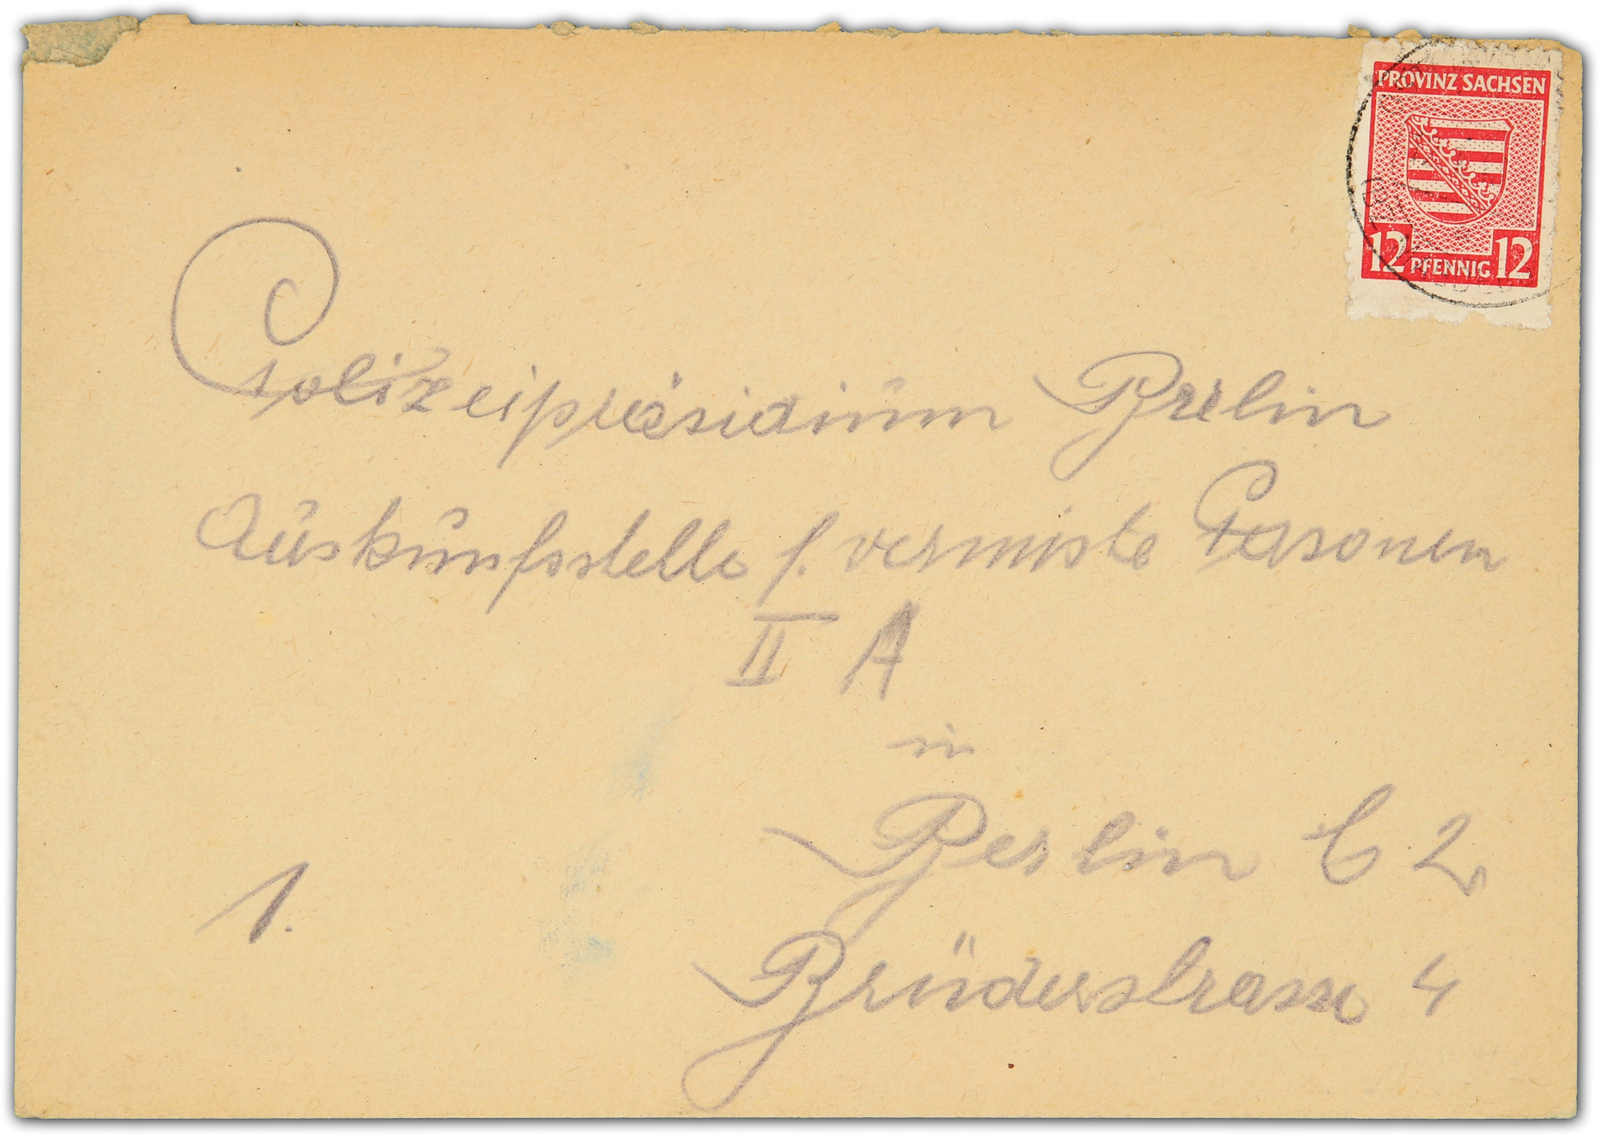 PROVINZ SACHSEN
12 PFENNIG 12
Polizeipräsidium Berlin
Auskunftsstelle f. vermiste Personen
II A
in
Berlin C 2
1.
Brüderstrasse 4